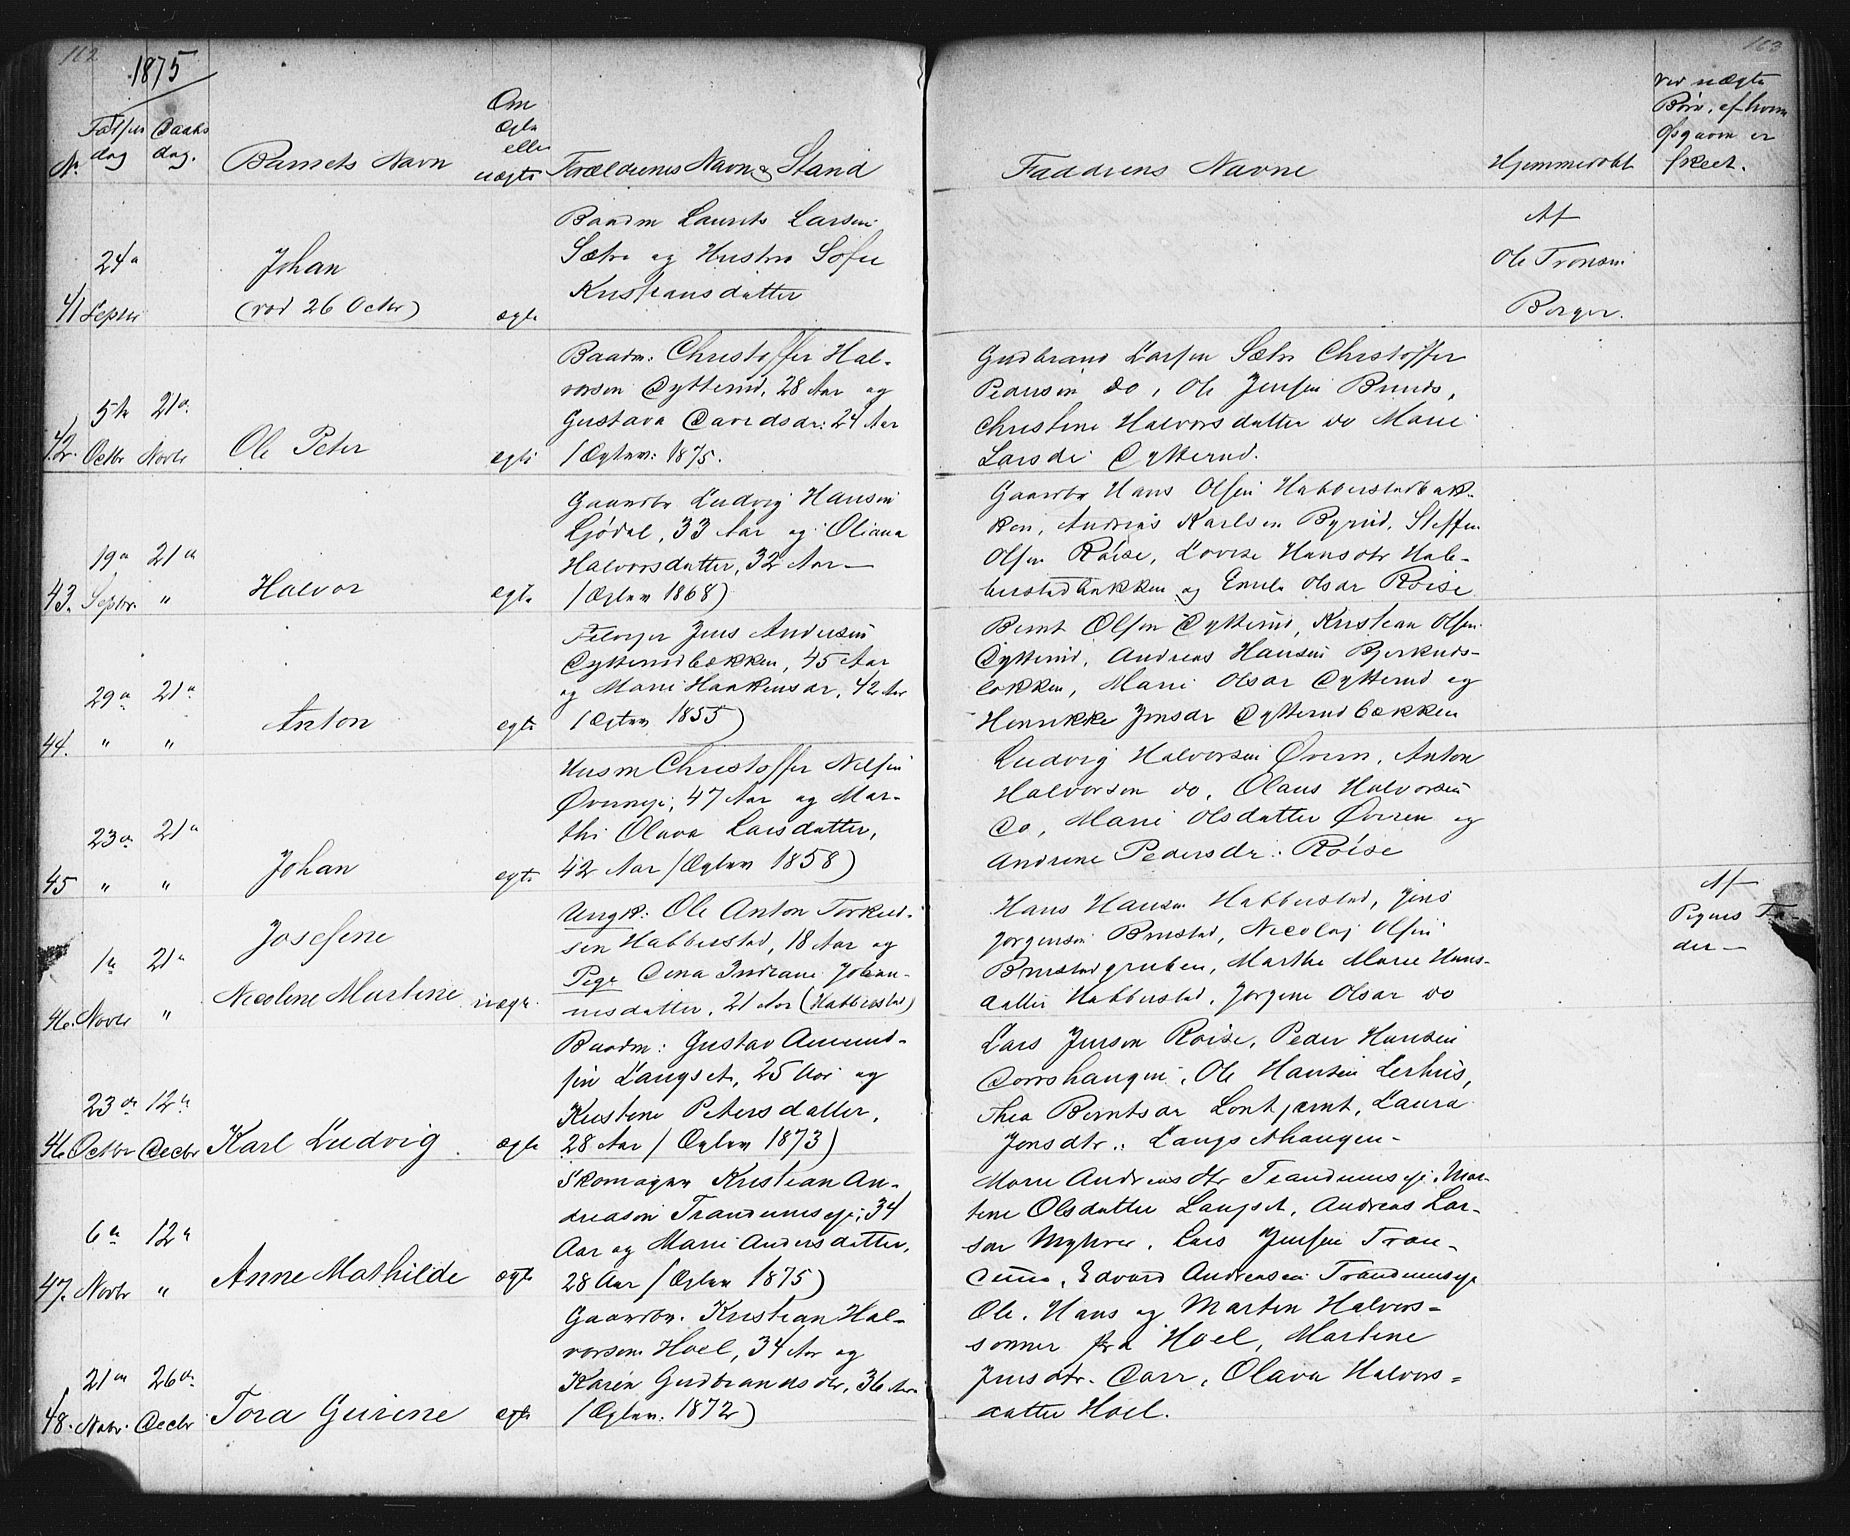 162
1875
163
Om
Ægte
eller
uægte
Daabs
dag.
dag
N.
Barnets Navn
Forældrenes Navn & Stand
Faddrens Navne
Hjemmedøbt
ved uægte
skeet.
41
24a
Septbr
Johan
(død 26 Octbr)
ægte
Baadm Laurits Larsen
Sætre og Hustru Sofie
Kristiansdatter
Af
Ole Tronsen
Berger.
42.
5te
Octbr
21a
Novbr
Ole Peter
egte
Baadm: Christoffer Hal-
vorsen Dytterud, 28 Aar og
Gustava Davidsdr: 24 Aar
/Ægtev: 1875.
Gudbrand Larsen Sætre Christoffer
Pedersen do, Ole Jensen
Christine Halvorsdatter do Marie
Larsdr Dytterud.
43.
19a
Septbr.
21a
"
Halvor
egte
Gaardbr Ludvig Hansen
Ljødal, 33 Aar og Oliana
Halvorsdatter, 32 Aar —
/Ægtev 1868)
Gaardbr Hans Olsen Habberstadbak-
ken, Andreas Karlsen Byrud, Steffen
Olsen Røise, Lovise Hansdtr Hab-
berstadbakken og Emile Olsdr Røise
44.
29a
"
21a
"
Anton
egte
Jens Andersen
Dytterudbakken, 45 Aar
og Marie Haakensdr, 42 Aar
/Ægtev 1855)
Bernt Olsen Dytterud, Kristian Olsen
Dytterud, Andreas Hansen Bjerknes-
lokken, Marie Olsdr Dytterud og
Henrikke Jensdr Dytterudbakken
45
23de
"
21a
"
Johan
egte
Husm Christoffer Nilsen
Øverneje, 47 Aar og Mar-
the Olava Larsdatter,
42 Aar /Ægtev 1858)
Ludvig Halvorsen Øvren, Anton
Halvorsen do, Olaus Halvorsen
Do, Marie Olsdatter Øvren og
Andrine Pedersdr: Røise
46.
1a
Novbr
21a
"
Josefine
Nicoline Martine
uægte.
Ungk: Ole Anton Torkild-
sen Habberstad, 18 Aar og
Pige Dina Indiane Johan-
nesdatter, 21 Aar (Habberstad)
Hans Hansen Habberstad, Jens
Jørgensen Brustad, Nicolaj Olsen
Brustadgruben, Marthe Marie Hans-
datter Habberstad, Jørgine Olsdr do
Af
Pigens Fa-
der —
46
23de
Octbr
12te
Decbr
Karl Ludvig.
ægte
Baadm: Gustav Amund-
sen Langset, 25 Aar og
Kristine Petersdatter,
28 Aar / Ægtev 1873)
Lars Jensen Røise, Peder Hansen
Dorrshaugen, Ole Hansen Lerhus,
Thea Berntsdr Lontjernt, Laura
Jensdtr.: Langsethaugen-
47.
6te
Novbr
12te
"
Anne Mathilde
ægte
Skomager Kristian An-
dreasen Trandumseje, 34
Aar og Marie Andersdatter,
28 Aar / Ægtev 1875)
Marie Andreasdtr Trandumseje, Mar-
tine Olsdatter Langset, Andreas Lar-
sen Myhrer, Lars Jensen Tran-
dum, Edvard Andreasen Trandumseje
48.
21de
Novbr.
26de
Decbr
Tora Geirine
egte
Gaardbr. Kristian Hal-
vorsen Hoel, 34 Aar og
Karen Gudbrandsdtr, 36 Aar
/Ægtev: 1872)
Ole, Hans og Martin Halvors-
sønner fra Hoel, Martine
Jensdtr. Dorr, Olava Halvors-
datter Hoel.